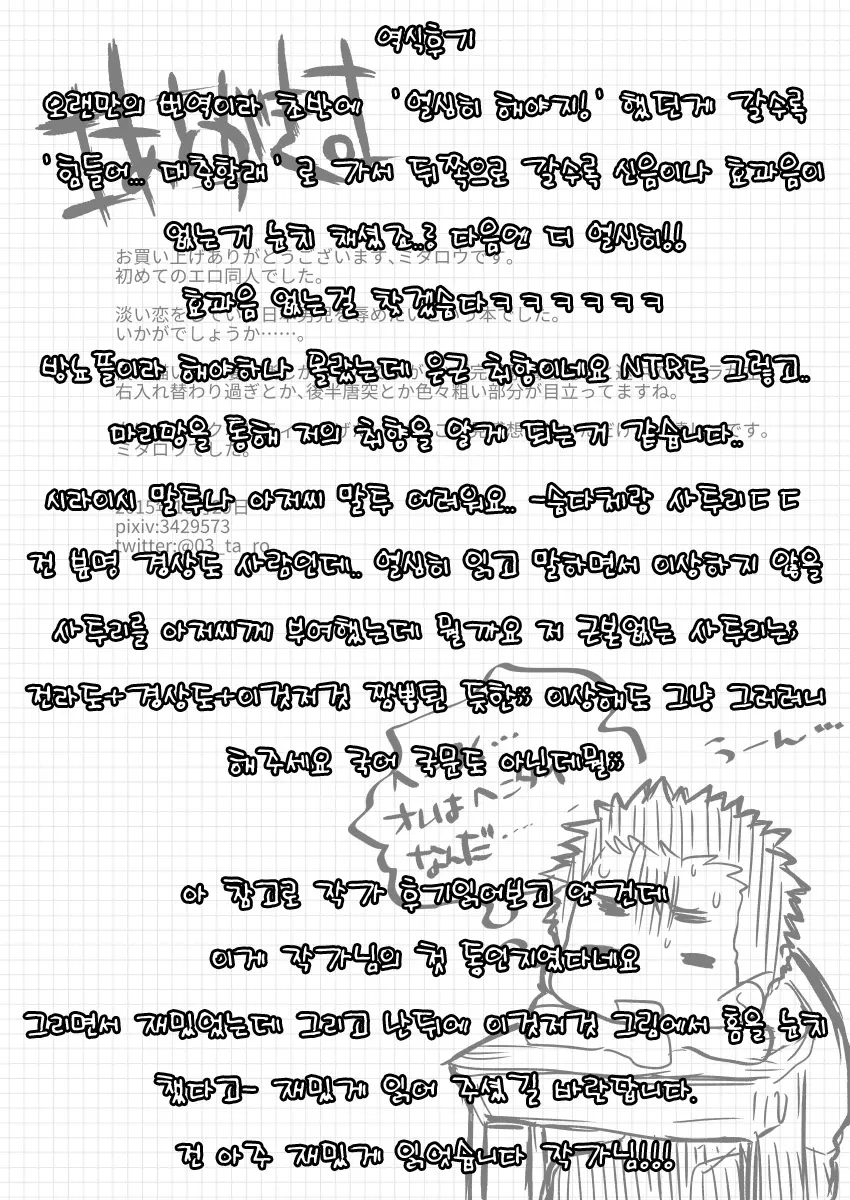 여식후기
오랜만의 번역이라 초반에 '열심히 해야지!' 했던게 갈수록
'힘들어... 대충할래' 로 가서 뒤쪽으로 갈수록 신음이나 효과음이
없는거 눈치 채셨죠..? 다음엔 더 열심히!!
お買い上げありがとうございます、ミタロウです。
初めてのエロ同人でした。
효과음 없는걸 찾겠슴다ㅋㅋㅋㅋㅋㅋ
淡い恋を 日本男児を辱めたいという本でした。
いかがでしょうか……。
방뇨플이라 해야하나 몰랐는데 은근 취향이네요 NTR도 그렇고..
右入れ替わり過ぎとか、後半唐突とか色々粗い部分が目立ってますね。
마리망을 통해 저의 취향을 알게 되는거 같습니다..
ミタロウでした。
시라이시 말투나 아저씨 말투 어려워요.. -슴다체랑 사투리ㄷㄷ
pixiv:3429573
twitter:@03_ta_ro
전 분명 경상도 사람인데.. 열심히 읽고 말하면서 이상하지 않을
사투리를 아저씨께 부여했는데 뭘까요 저 근본없는 사투리는;
전라도+경상도+이것저것 짬뽕된 듯한;; 이상해도 그냥 그러려니
해주세요 국어 국문도 아닌데뭘;;
うーん…
オレはヘ
なんだ…
아 참고로 작가 후기읽어보고 안 건데
이게 작가님의 첫 동인지였다네요
그리면서 재밌었는데 그리고 난뒤에 이것저것 그림에서 흠을 눈치
챘다고~ 재밌게 읽어 주셨길 바란답니다.
전 아주 재밌게 읽었습니다 작가님!!!